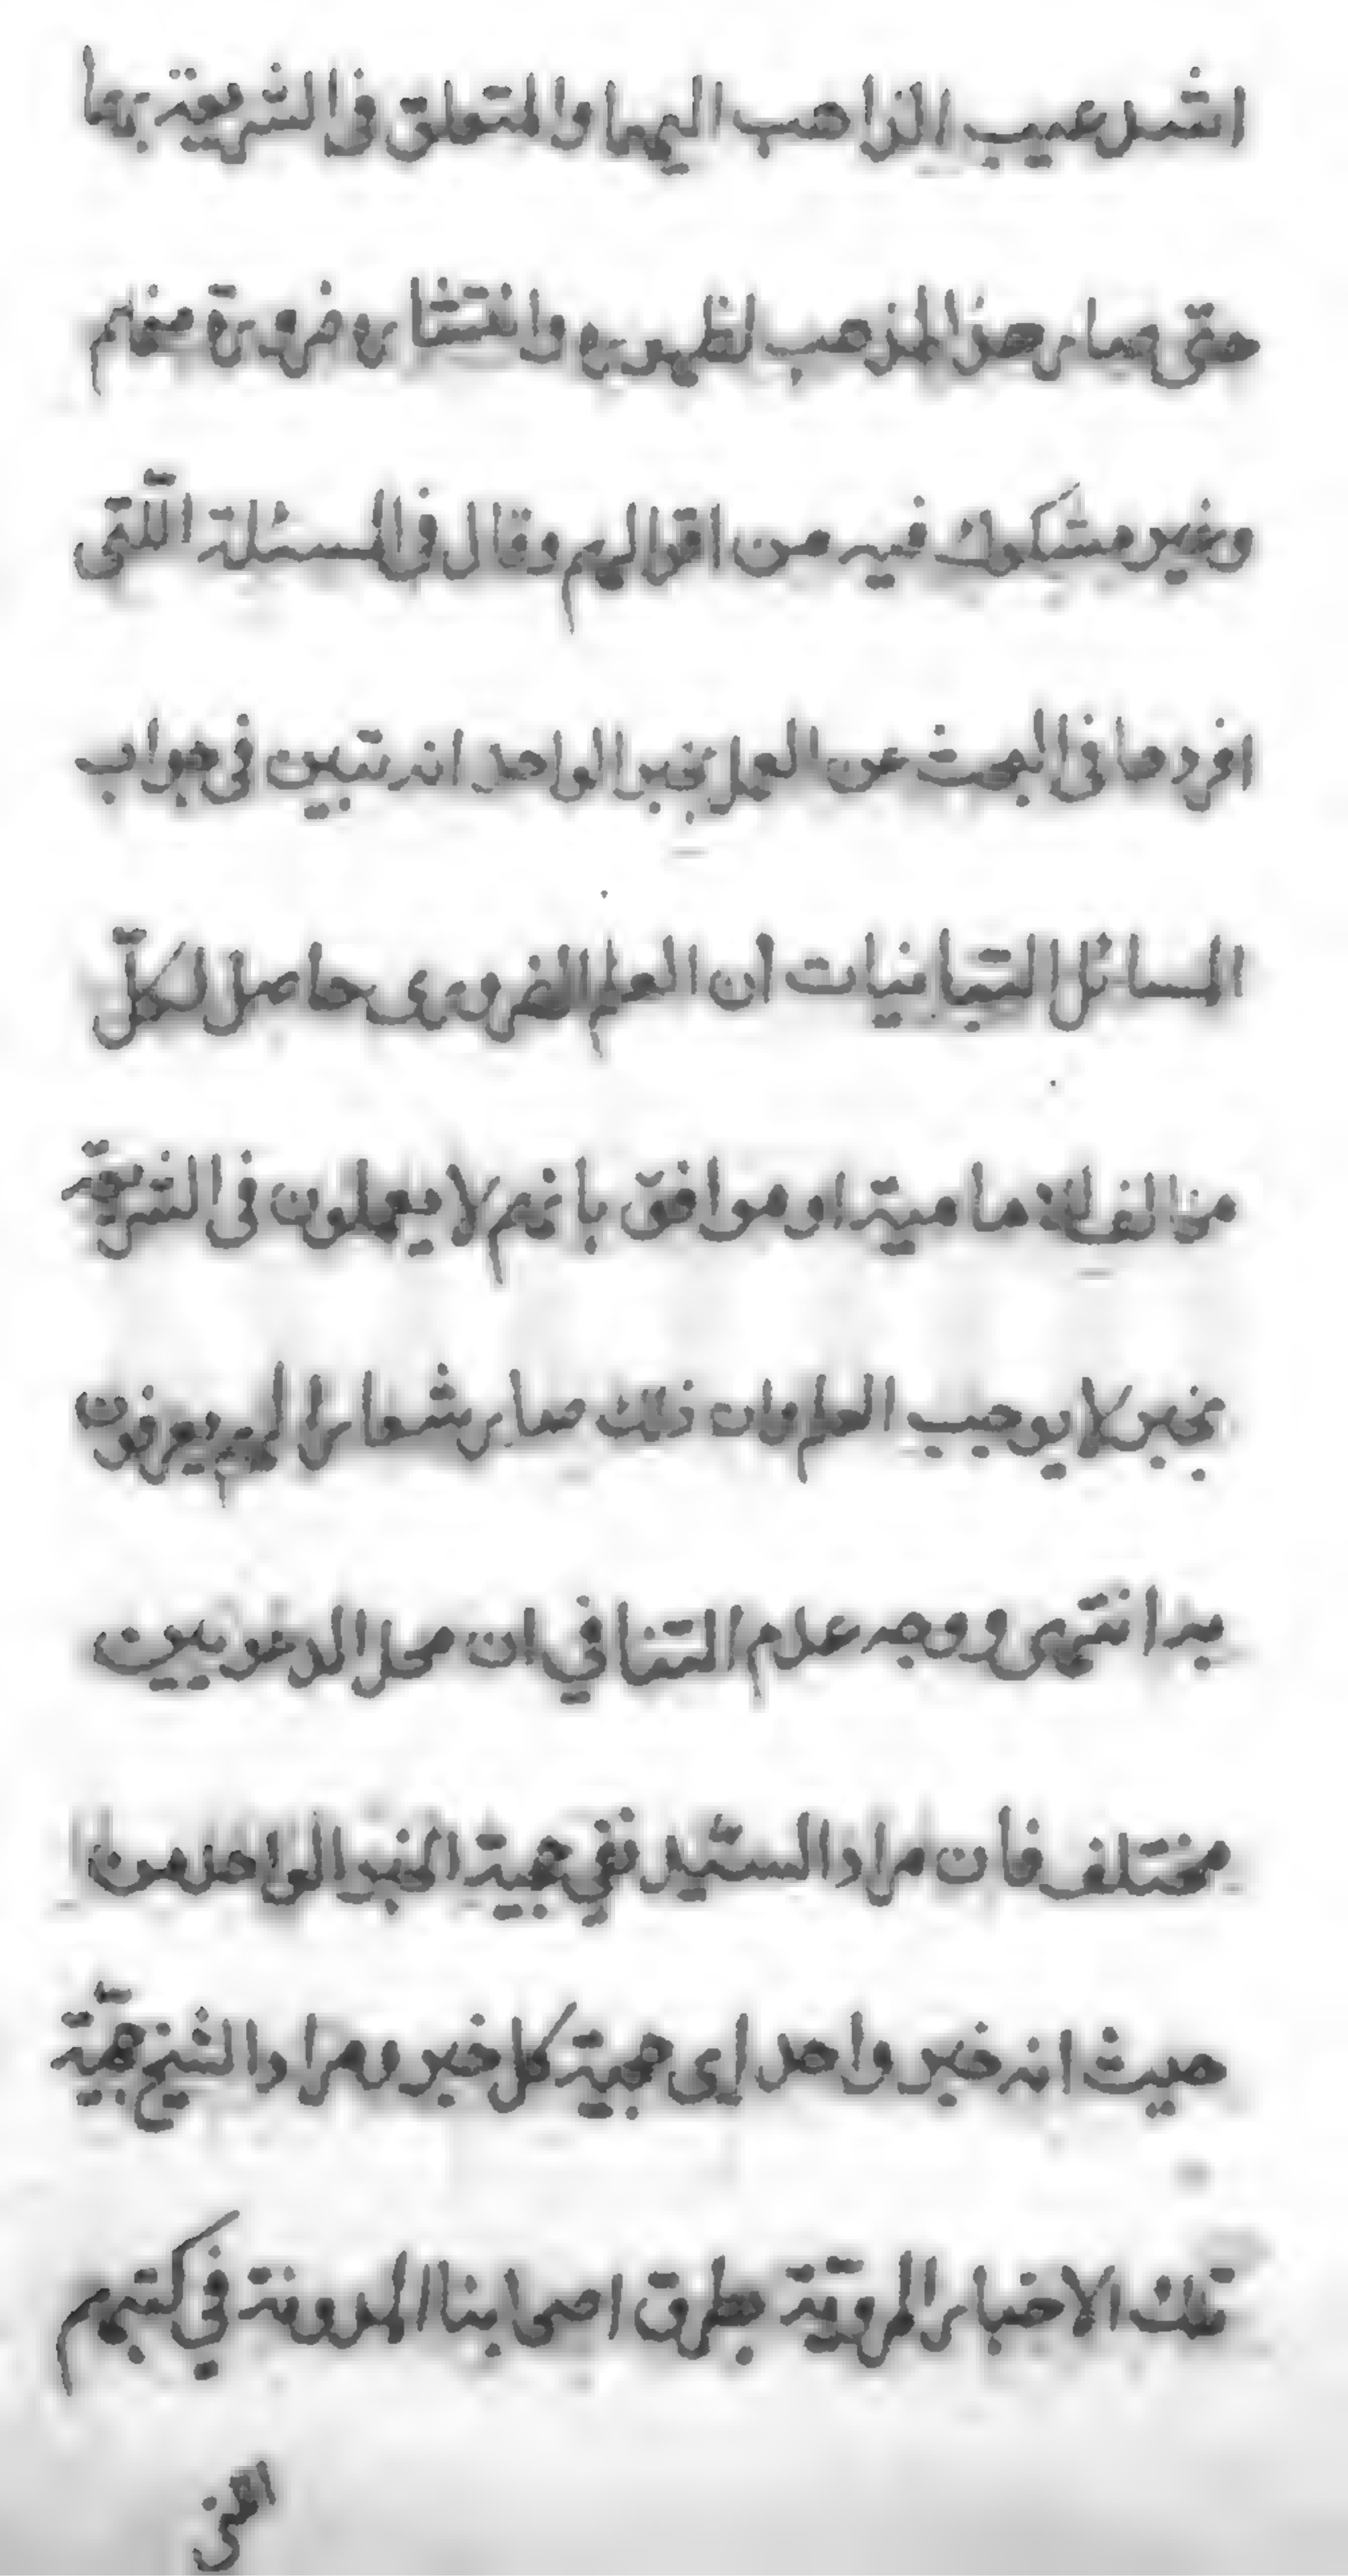 اشد عيب الذاهب اليهما والمتعلق فى الشريعة بهما
حتى صار هذا المذهب لظهوره وانتشاره ضرورة منهم
وغير مشكوك فيه من اقوالهم وقال فى المسئلة اللتى
افردها فى البحث عن العمل بخبر الواحد انه تبين فى جواب
المسائل التبانيات ان العلم الضرورى حاصل لكلّ
مخالف للامامية او موافق بانهم لا يعملون فى الشريعة
بخبر لا يوجب العلم وان ذلك صار شعارا لهم يعرفون
به انتهى ووجه عدم التنافي ان محل الدعويين
مختلف فأن مراد السيّد نفي حجية الخبر الواحد من
حيث انه خبر واحد اى حجية كل خبر ومراد الشيخ حجيّة
تلك الاخبار المروية بطرق اصحابنا المدونة في كتبهم